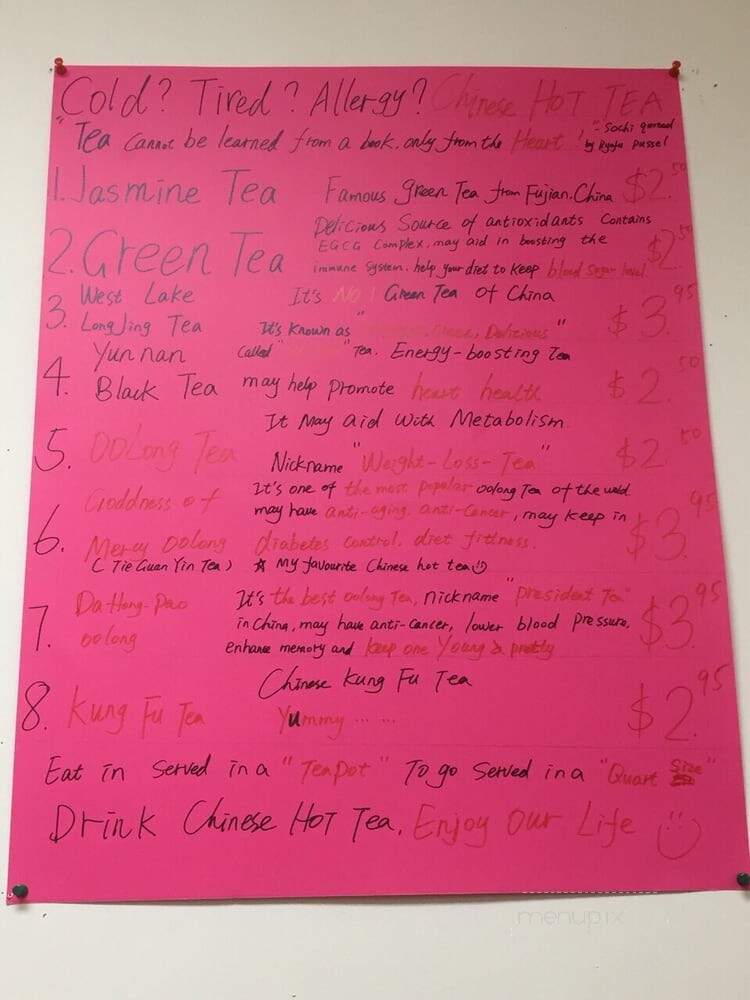 Cold? Tired? Allergy? Chinese HOT TEA
"Tea Cannot be learned from a book, only from the Heart!" - Sochi
by
1. Jasmine Tea Famous green Tea from Fujian. China $2.50
2. Green Tea Delicious Source of antioxidants Contains
EGCG Complex, may aid in boosting the $2.50
immune System, help your diet to keep blood sugar level
3. West Lake It's No 1 Green Tea of China $3.95
LongJing Tea It's known as " Delicious"
4. Yunnan Called " " Tea. Energy-boosting Tea $2.50
Black Tea may help promote heart health
5. Oolong Tea It May aid with Metabolism $2.50
Nickname "Weight-Loss-Tea"
6. Goddness of It's one of the most popular oolong Tea of the world $3.95
may have anti-aging, anti-cancer, may keep in
Mercy Oolong diabetes control, diet fittness.
(Tie Guan Yin Tea) ☆ My favourite Chinese hot tea
7. Da Hong-Pao It's the best oolong Tea, nickname "president Tea" $3.95
oolong in China, may have anti-cancer, lower blood pressure,
enhance memory and keep one Young & pretty
8. Kung Fu Tea Chinese Kung Fu Tea $2.95
Yummy ... ...
Eat in Served in a "TeaPot" To go Served in a "Quart Size"
Drink Chinese Hot Tea, Enjoy Our Life
menupix